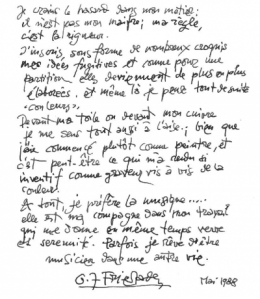 Je crains le hasard dans mon métier:
il n'est pas mon maître; ma règle,
c'est la rigueur.
J'inscris sous forme de nombreux croquis
mes idées fugitives et comme pour une
partition elles deviennent de plus en plus
élaborées, et même là je peux tout de suite
"couleurs".
Devant ma toile ou devant mon cuivre
je me sens tout aussi à l'aise; bien que
j'aie commencé plutôt comme peintre, et
c'est peut-être ce qui m'a rendu si
inventif comme graveur vis à vis de la
couleur.
A tout, je préfère la musique....
elle est ma compagne dans mon travail
qui me donne en même temps verve
et sérénité. Parfois je rêve d'être
musicien dans une autre vie.
Mai 1988